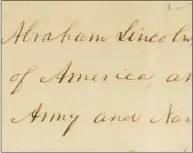 Abraham Lincoln
of America, an
Army and Nav